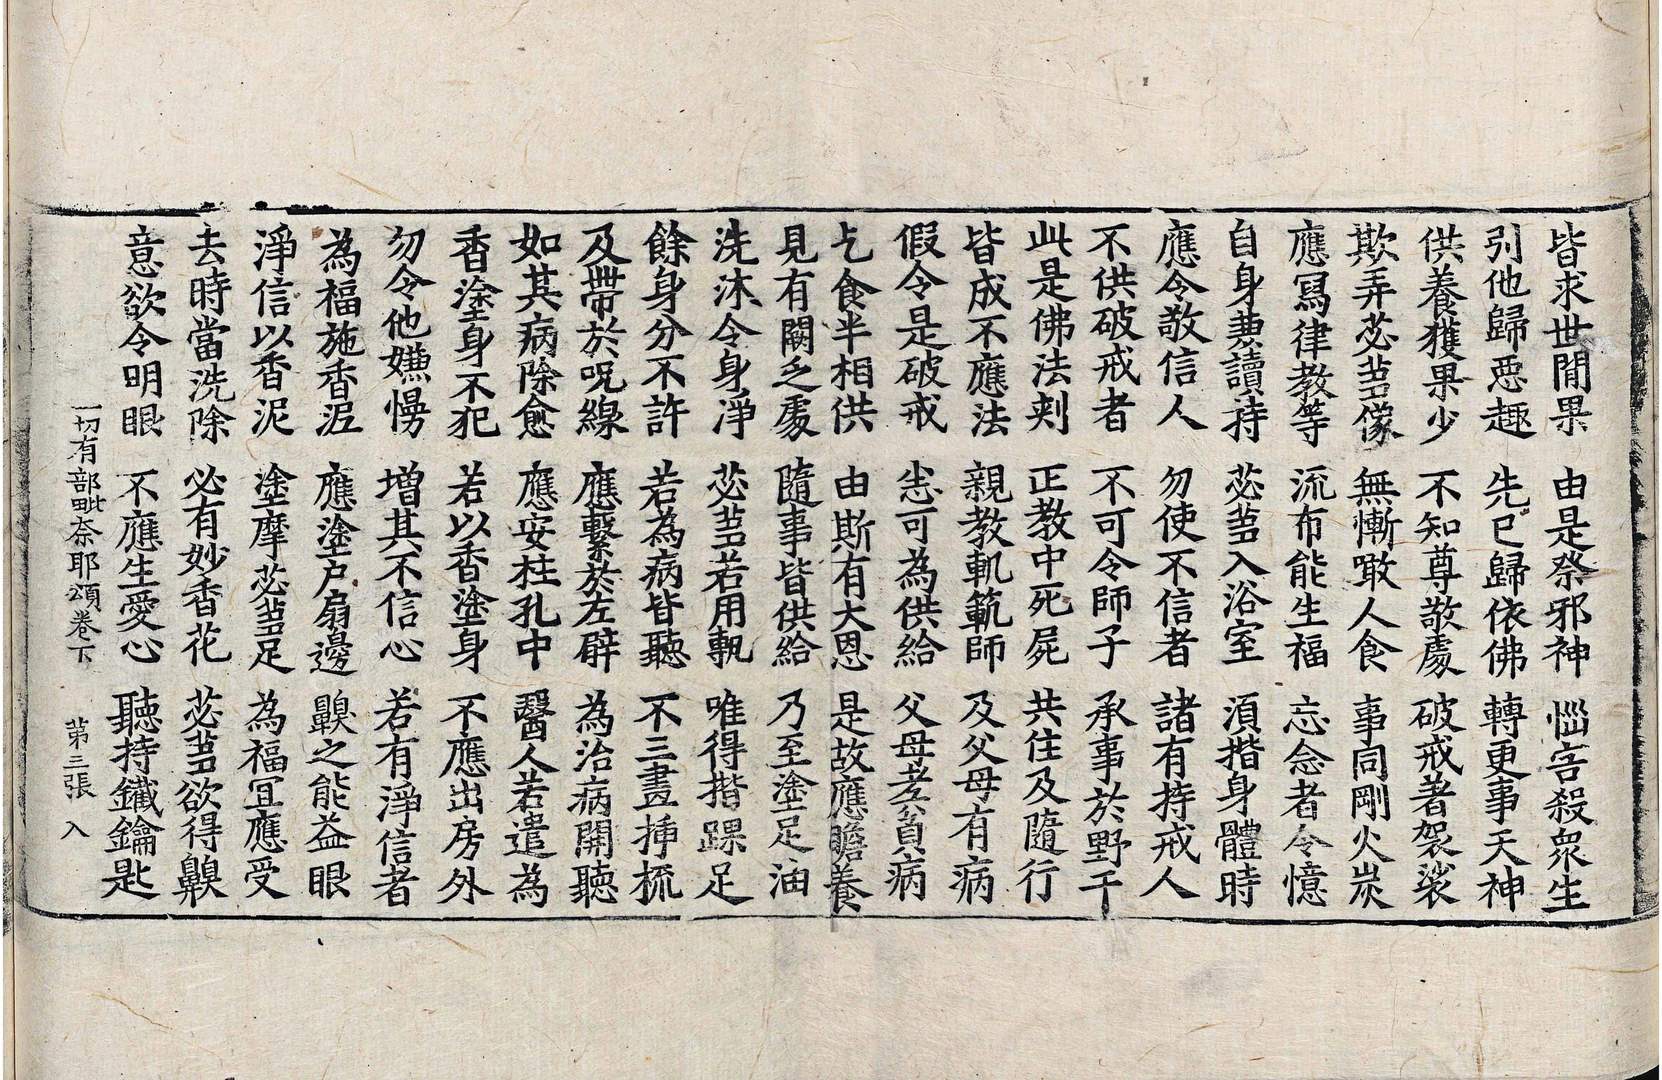 皆求世閒果 由是祭邪神 惱害殺眾生
引他歸惡趣 先已歸依佛 轉更事天神
供養獲果少 不知尊敬處 破戒著袈裟
欺弄苾芻像 無慚噉人食 事同剛火炭
應寫律教等 流布能生福 忘念者令憶
自身兼讀持 苾芻入浴室 須揩身體時
應令敬信人 勿使不信者 諸有持戒人
不供破戒者 不可令師子 承事於野干
此是佛法刾 正教中死屍 共住及隨行
皆成不應法 親教軌範師 及父母有病
假令是破戒 悉可為供給 父母孝貧病
乞食半相供 由斯有大恩 是故應瞻養
見有闕乏處 隨事皆供給 乃至塗足油
洗沐令身淨 苾芻若用甎 唯得揩踝足
餘身分不許 若為病皆聽 不三畫揷梳
及帶於呪線 應繫於左臂 為治病開聽
如其病除愈 應安柱孔中 醫人若遣為
香塗身不犯 若以香塗身 不應出房外
勿令他嫌慢 增其不信心 若有淨信者
為福施香泥 應塗户扇邊 齅之能益眼
淨信以香泥 塗摩苾芻足 為福冝應受
去時當洗除 必有妙香花 苾芻欲得齅
意欲令明眼 不應生愛心 聽持鐵鑰匙
一切有部毗奈耶頌卷下 第三張 入